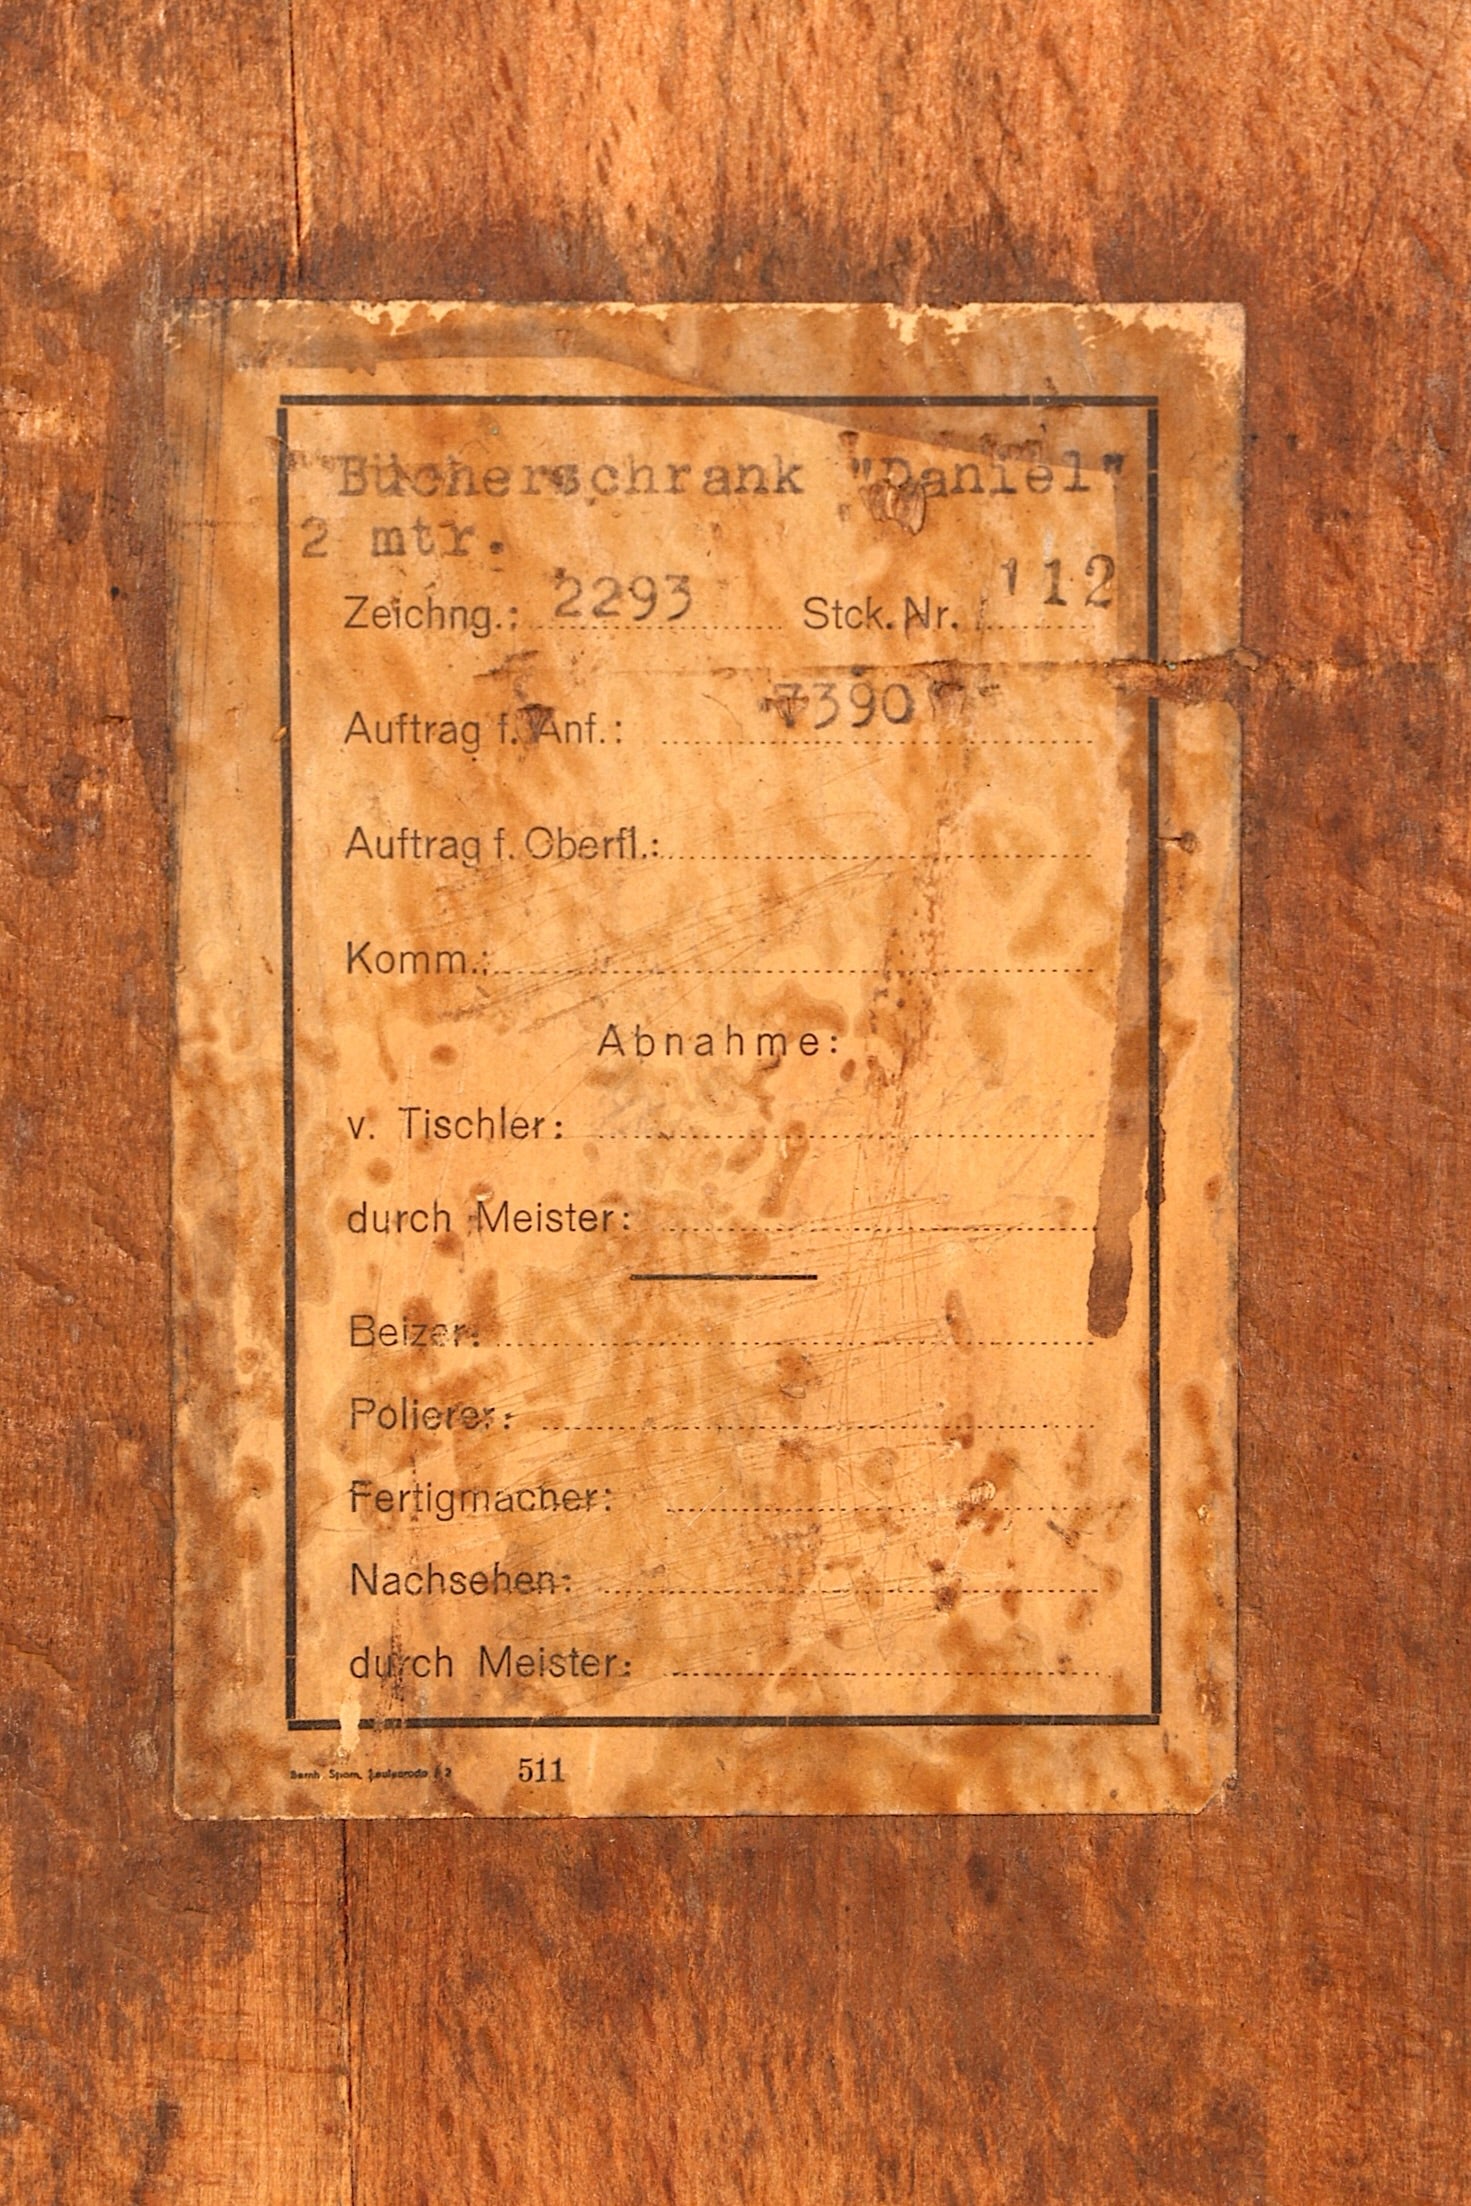 Bücherschrank "Daniel"
2 mtr.
Zeichng.: 2293 Stck. Nr. 112
Auftrag f. Anf.: 7390
Auftrag f. Oberfl.:
Komm.:
Abnahme:
v. Tischler:
durch Meister:
Beizer:
Polierer:
Fertigmacher:
Nachsehen:
durch Meister:
Bernh. 511